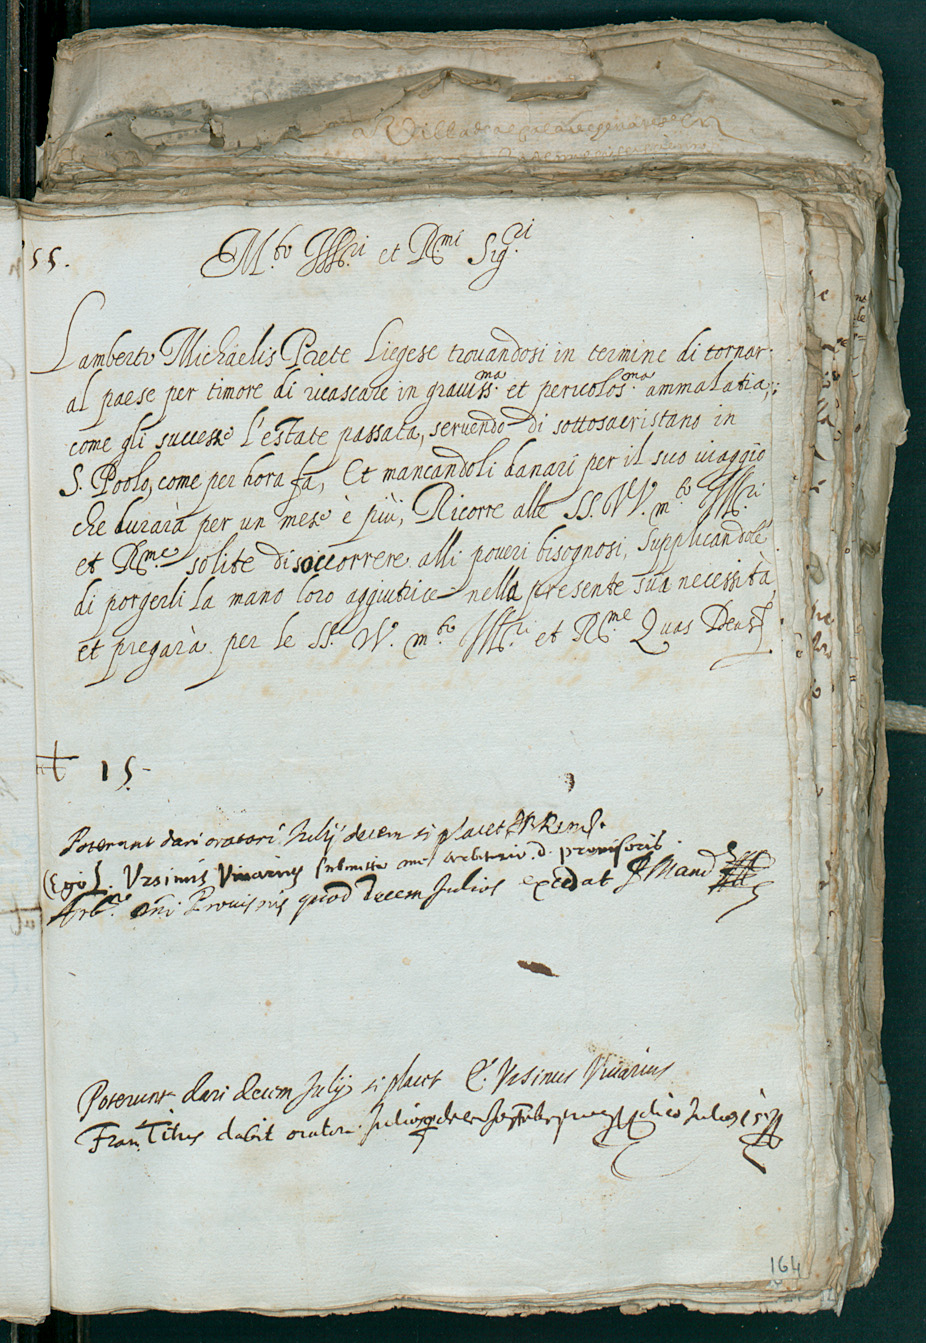 55.
M.to Ill.ri et R.mi Sig.ri
Lamberto Michaelis Prete Liegese trovandosi in termine di tornar
al paese per timore di ricascare in graviss.ma et pericolos.ma ammalatia,
come gli successe l'estate passata, servendo di sottosacristano in
S. Poolo, come per hora fa, Et mancandoli danari per il suo viaggio
che durarà per un mese è più, Ricorre alle SS. VV. m.to Ill.ri
et R.me solite di soccorrere alli poveri bisognosi, Supplicandole
di porgerli la mano loro aggiutrice nella presente sua necessità,
et pregarà per le SS. VV. m.to Ill.ri et R.me Quas Deus
15
Poterunt dari oratori Julij decem si placet
Ego Ursinus Vivarius submitto me arbitrio d. provisoris
Arb.o Provisoris quod decem Julios excedat
Poterunt dari decem Julij si placet Ursinus Vivarius
Fran. Titus dabit oratori Julios
164